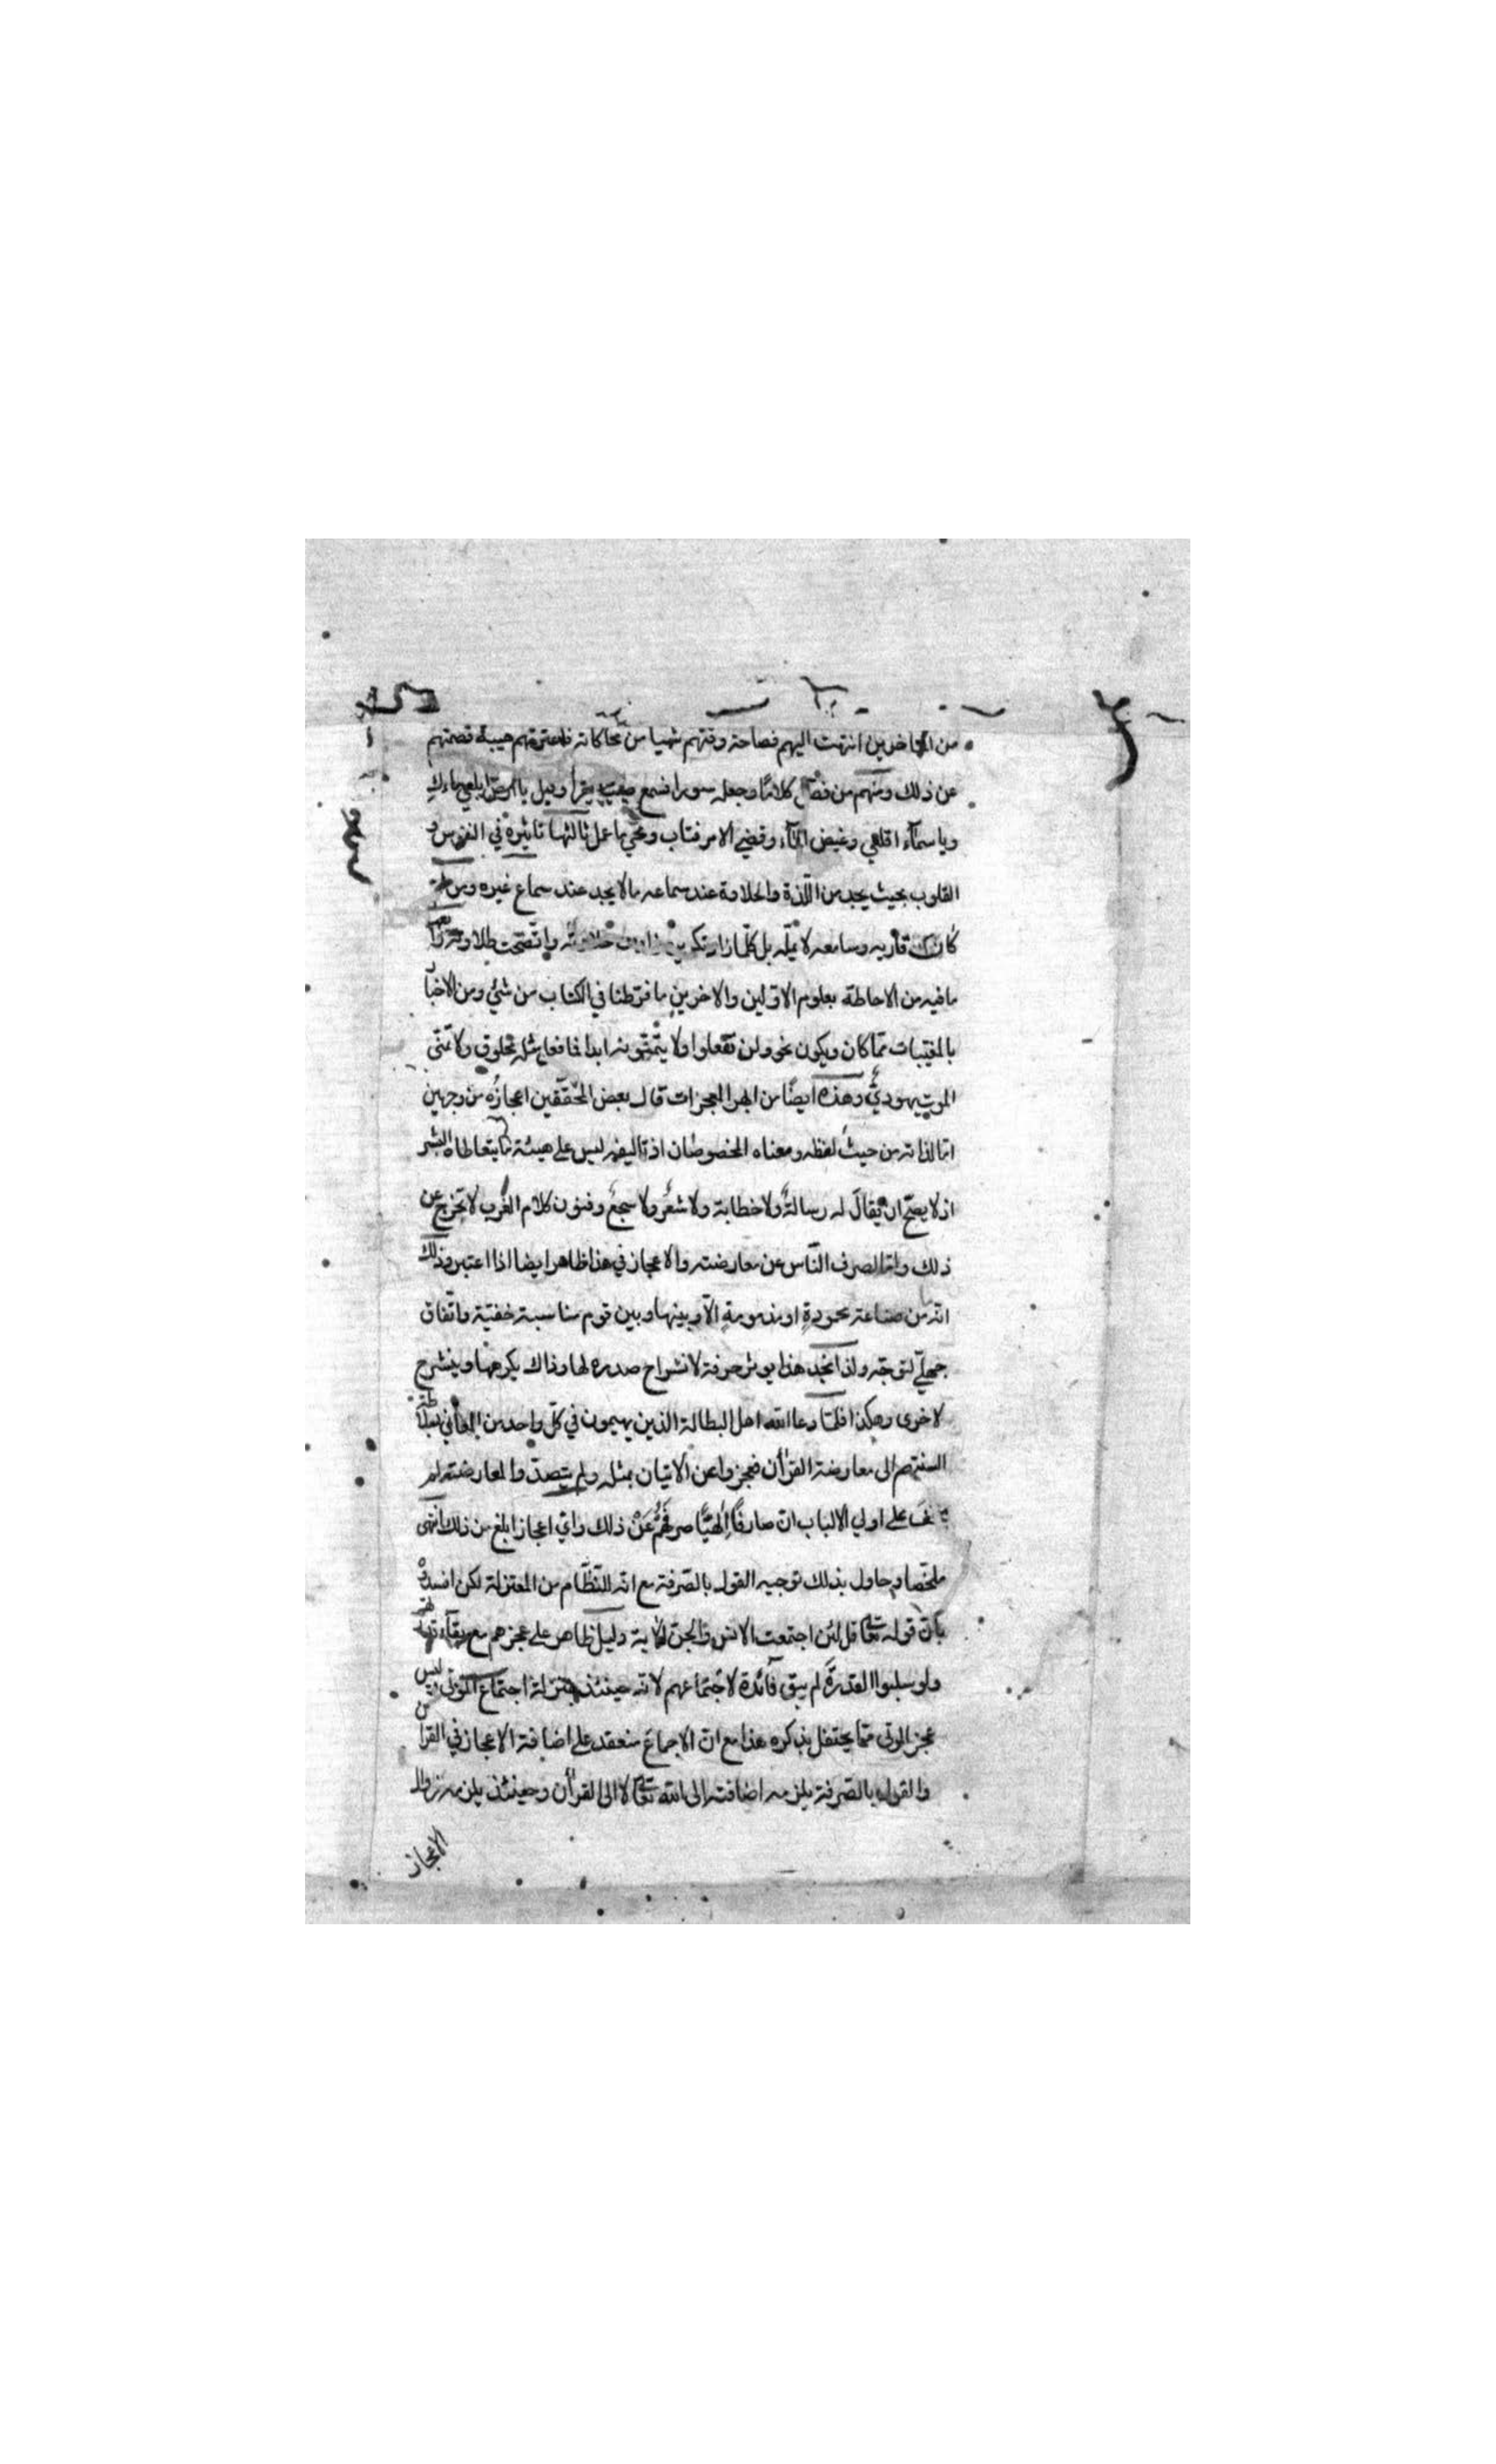 من المتأخرين انتهت اليهم فصاحة وقتهم شيئا من محاكاته فاعترتهم هيبة قصمتهم
عن ذلك ومنهم من فصل كلاما وجعله سورا فسمع صبيا يقرأ وقيل يا ارض ابلعي ماءك
ويا سماء اقلعي وغيض الماء وقضي الامر فتاب ومحي ما عمل ثالثها تاثيره في النفوس و
القلوب بحيث يجد من اللذة والحلاوة عند سماعه ما لا يجد عند سماع غيره ومن ثم
كان قاريه وسامعه لا يمله بل كلما زاد تكريره زادت حلاوته واتضحت طلاوته
ما فيه من الاحاطة بعلوم الاولين والاخرين ما فرطنا في الكتاب من شئ ومن الاخبار
بالمغيبات مما كان ويكون نحو ولن تفعلوا ولا يتمنونه ابدا فما فعل مثله مخلوق ولا تمنى
الموت يهودي وهذه ايضا من ابهر المعجزات قال بعض المحققين اعجازه من وجهين
اما لذاته من حيث لفظه ومعناه المخصوصان اذ تاليفه ليس على هيئة ما يتعاطاه البشر
اذ لا يصح ان يقال له رسالة ولا خطابة ولا شعر ولا سجع وفنون كلام العرب لا تخرج عن
ذلك واما لصرف الناس عن معارضته والاعجاز في هذا ظاهر ايضا اذا اعتبر وذلك
انه من صناعة محمودة او مذمومة الا وبينها وبين قوم مناسبة خفية واتفاق
جملي لتوجه ولذا تجد هذا يوثر حرفة لانشراح صدره لها وذاك يكرهها وينشرح
لاخرى وهكذا فلما دعا الله اهل البطالة الذين يهيمون في كل واحد من المعاني بسلاطة
السنتهم الى معارضة القرأن فعجزوا عن الاتيان بمثله ولم يتصدوا لمعارضته لم
يخف على اولي الالباب ان صارفا الهيا صرفهم عن ذلك واي اعجاز ابلغ من ذلك انتهى
ملخصا وحاول بذلك توجيه القول بالصرفة مع انه للنظام من المعتزلة لكن افسده
بان قوله تعا قل لئن اجتمعت الانس والجن الاية دليل ظاهر على عجزهم مع بقاء قدرتهم
ولو سلبوا القدرة لم يبق فائدة لاجتماعهم لانه حينئذ بمنزلة اجتماع الموتى وليس
عجز الموتى مما يحتفل بذكره هذا مع ان الاجماع منعقد على اضافة الاعجاز في القرا
والقول بالصرفة يلزمه اضافته الى الله تعا لا الى القرأن وحينئذ يلزمه زوال
الاعجاز